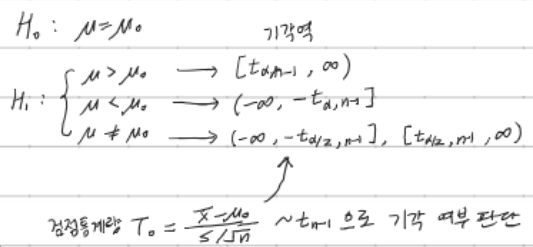 H₀ : μ = μ₀ 기각역
H₁ : { μ > μ₀ → [t_{α,n-1}, ∞)
μ < μ₀ → (-∞, -t_{α,n-1}]
μ ≠ μ₀ → (-∞, -t_{α/2,n-1}], [t_{α/2,n-1}, ∞)
검정통계량 T₀ = (x̄ - μ₀) / (s/√n) ~ t_{n-1} 으로 기각 여부 판단